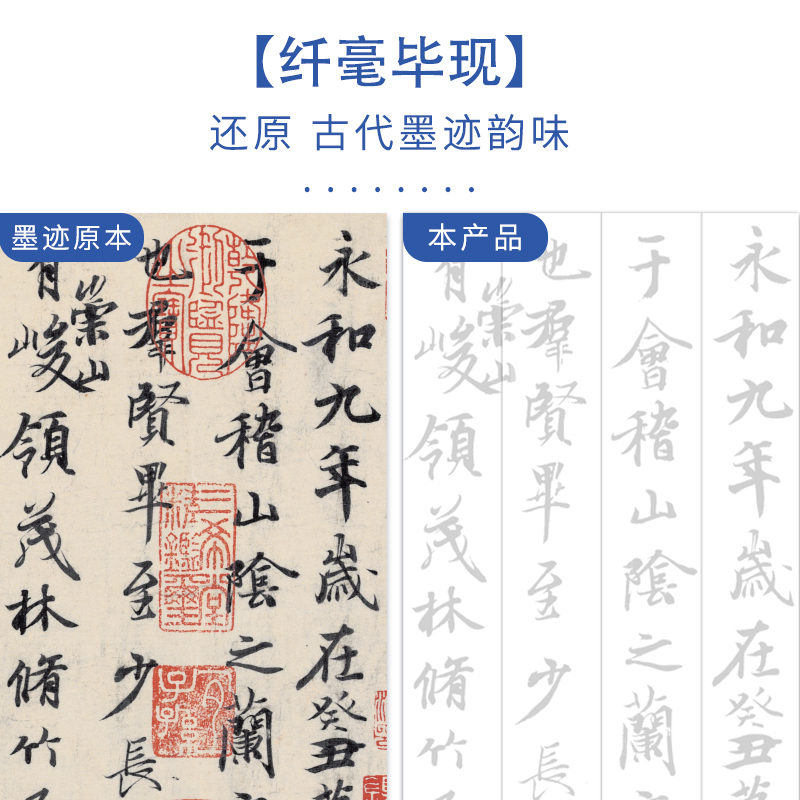 【纤毫毕现】
还原 古代墨迹韵味
墨迹原本
永和九年歲在癸丑
于會稽山陰之蘭
也群賢畢至少長
有崇山峻領茂林脩竹
三希堂
精鑑璽
宜
子孫
本产品
永和九年歲在癸丑
于會稽山陰之蘭
也羣賢畢至少長
有崇山峻領茂林脩竹